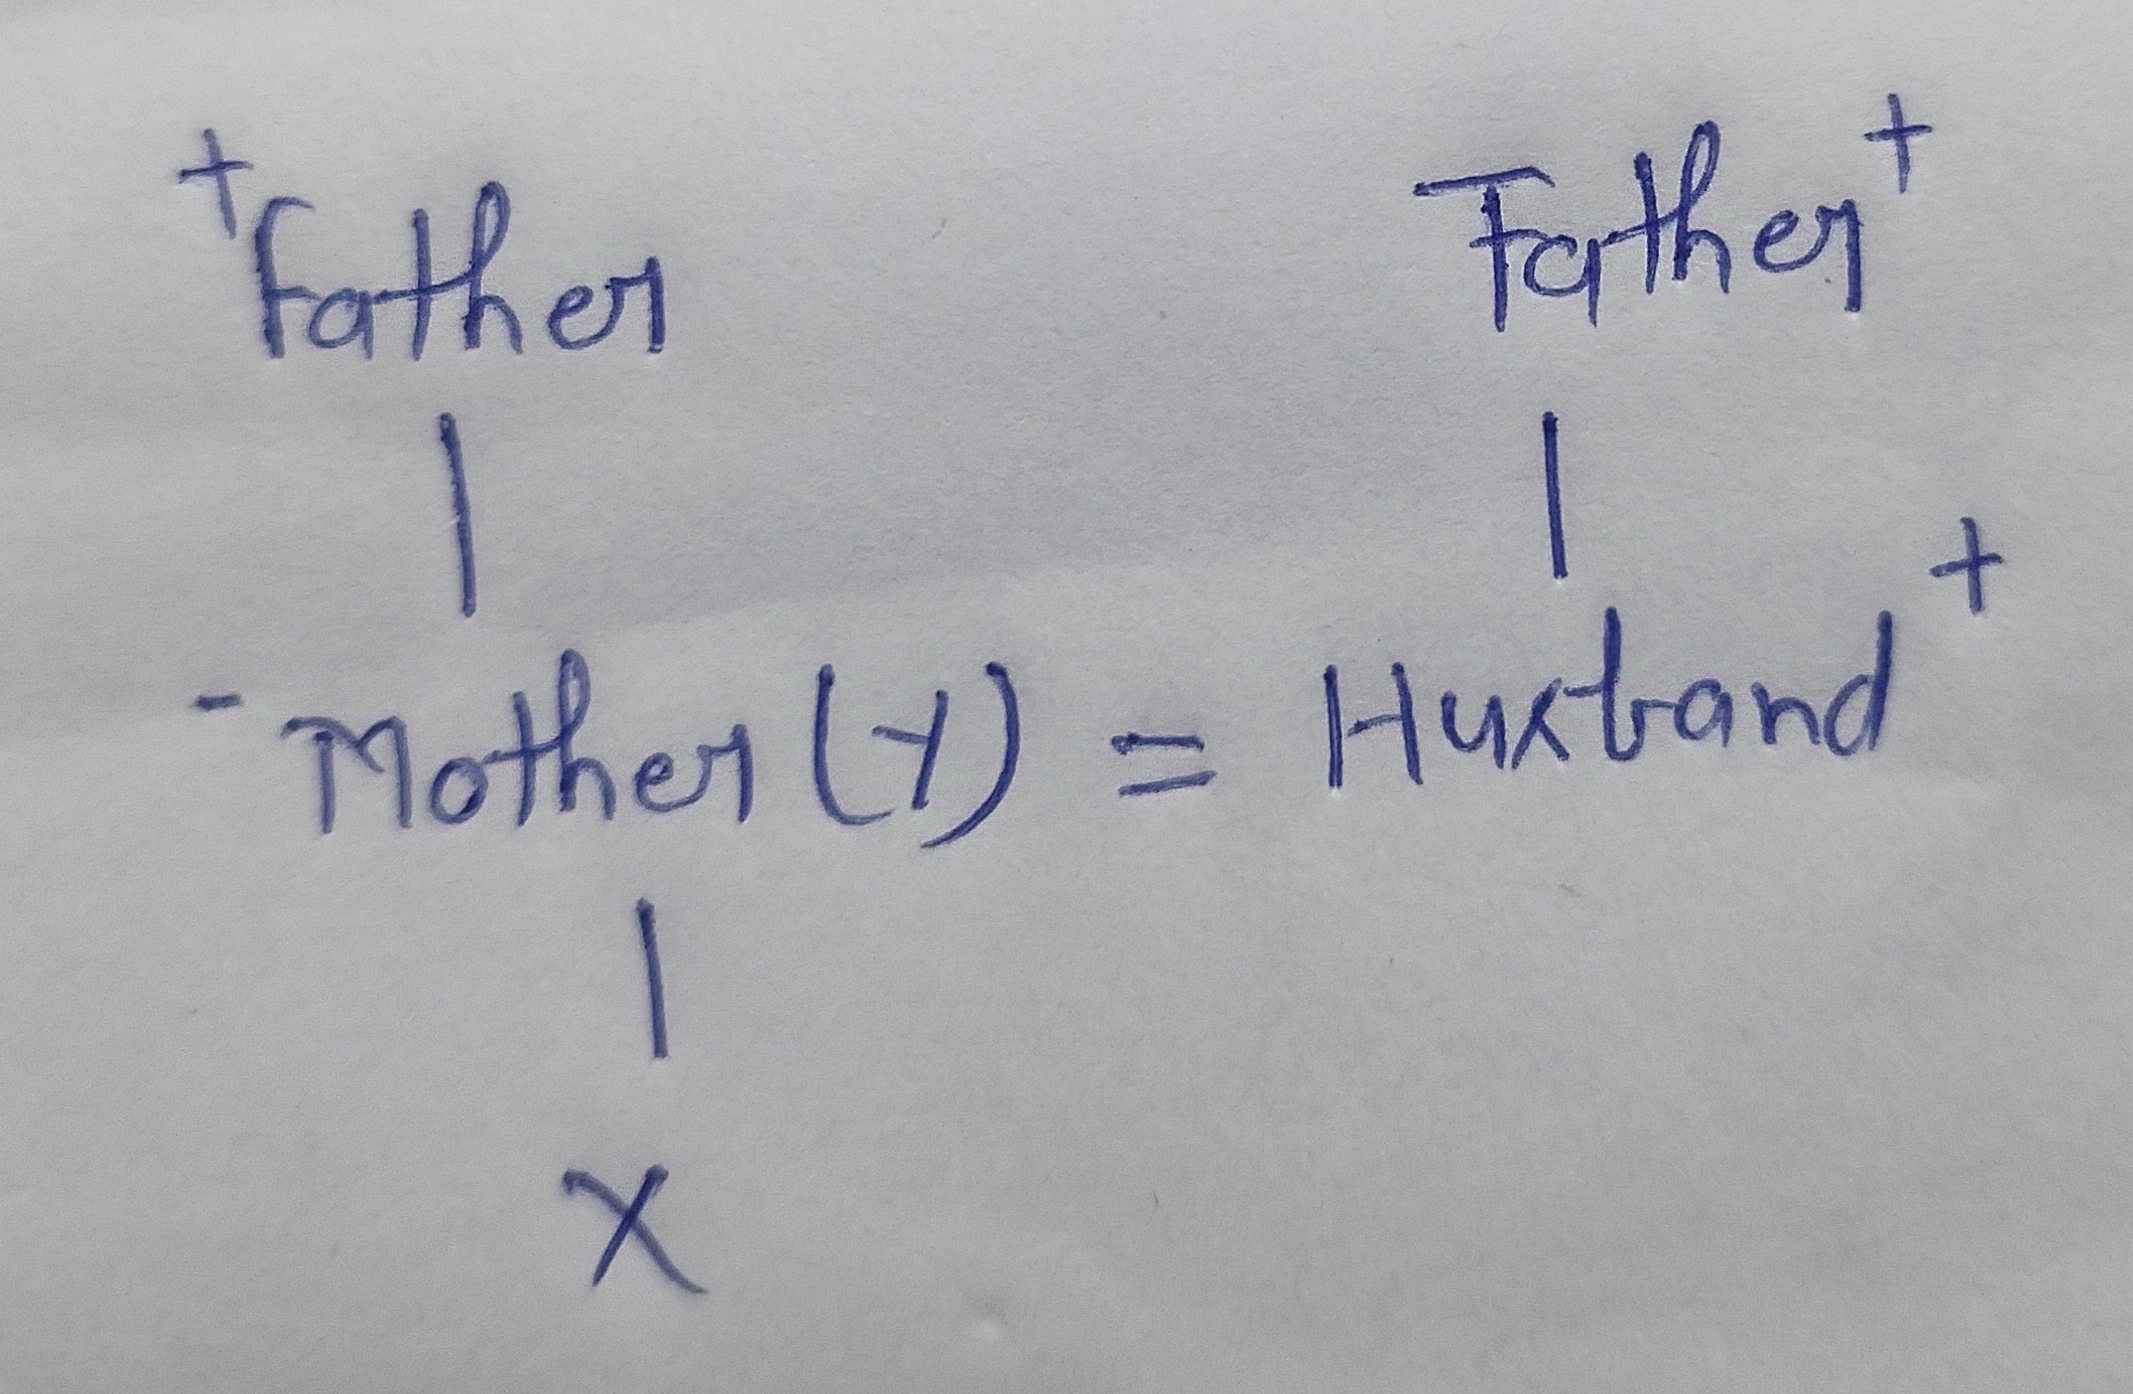 + Father Father +
|  |
- Mother (Y) = Husband +
|
X